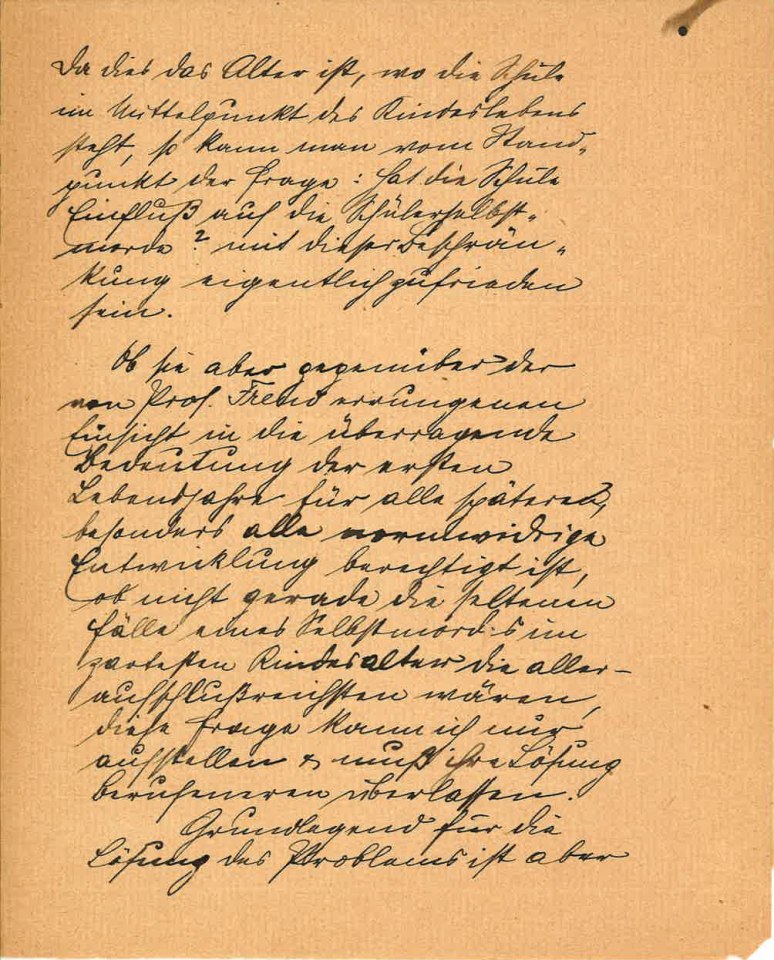 Da dies das Alter ist, wo die Schule
im Mittelpunkt des Kindeslebens
steht, so kann man vom Stand-
punkt der Frage: hat die Schule
Einfluß auf die Schülerselbst-
morde? mit dieser Beschrän-
kung eigentlich zufrieden
sein.
Ob sie aber gegenüber der
von Prof. Freud errungenen
Einsicht in die überragende
Bedeutung der ersten
Lebensjahre für alle späteren,
besonders alle normwidrige
Entwicklung berechtigt ist,
ob nicht gerade die seltenen
Fälle eines Selbstmordes im
zartesten Kindesalter die aller-
aufschlußreichsten wären,
diese Frage kann ich nur
aufstellen & muß ihre Lösung
berufeneren überlassen.
Grundlegend für die
Lösung des Problems ist aber